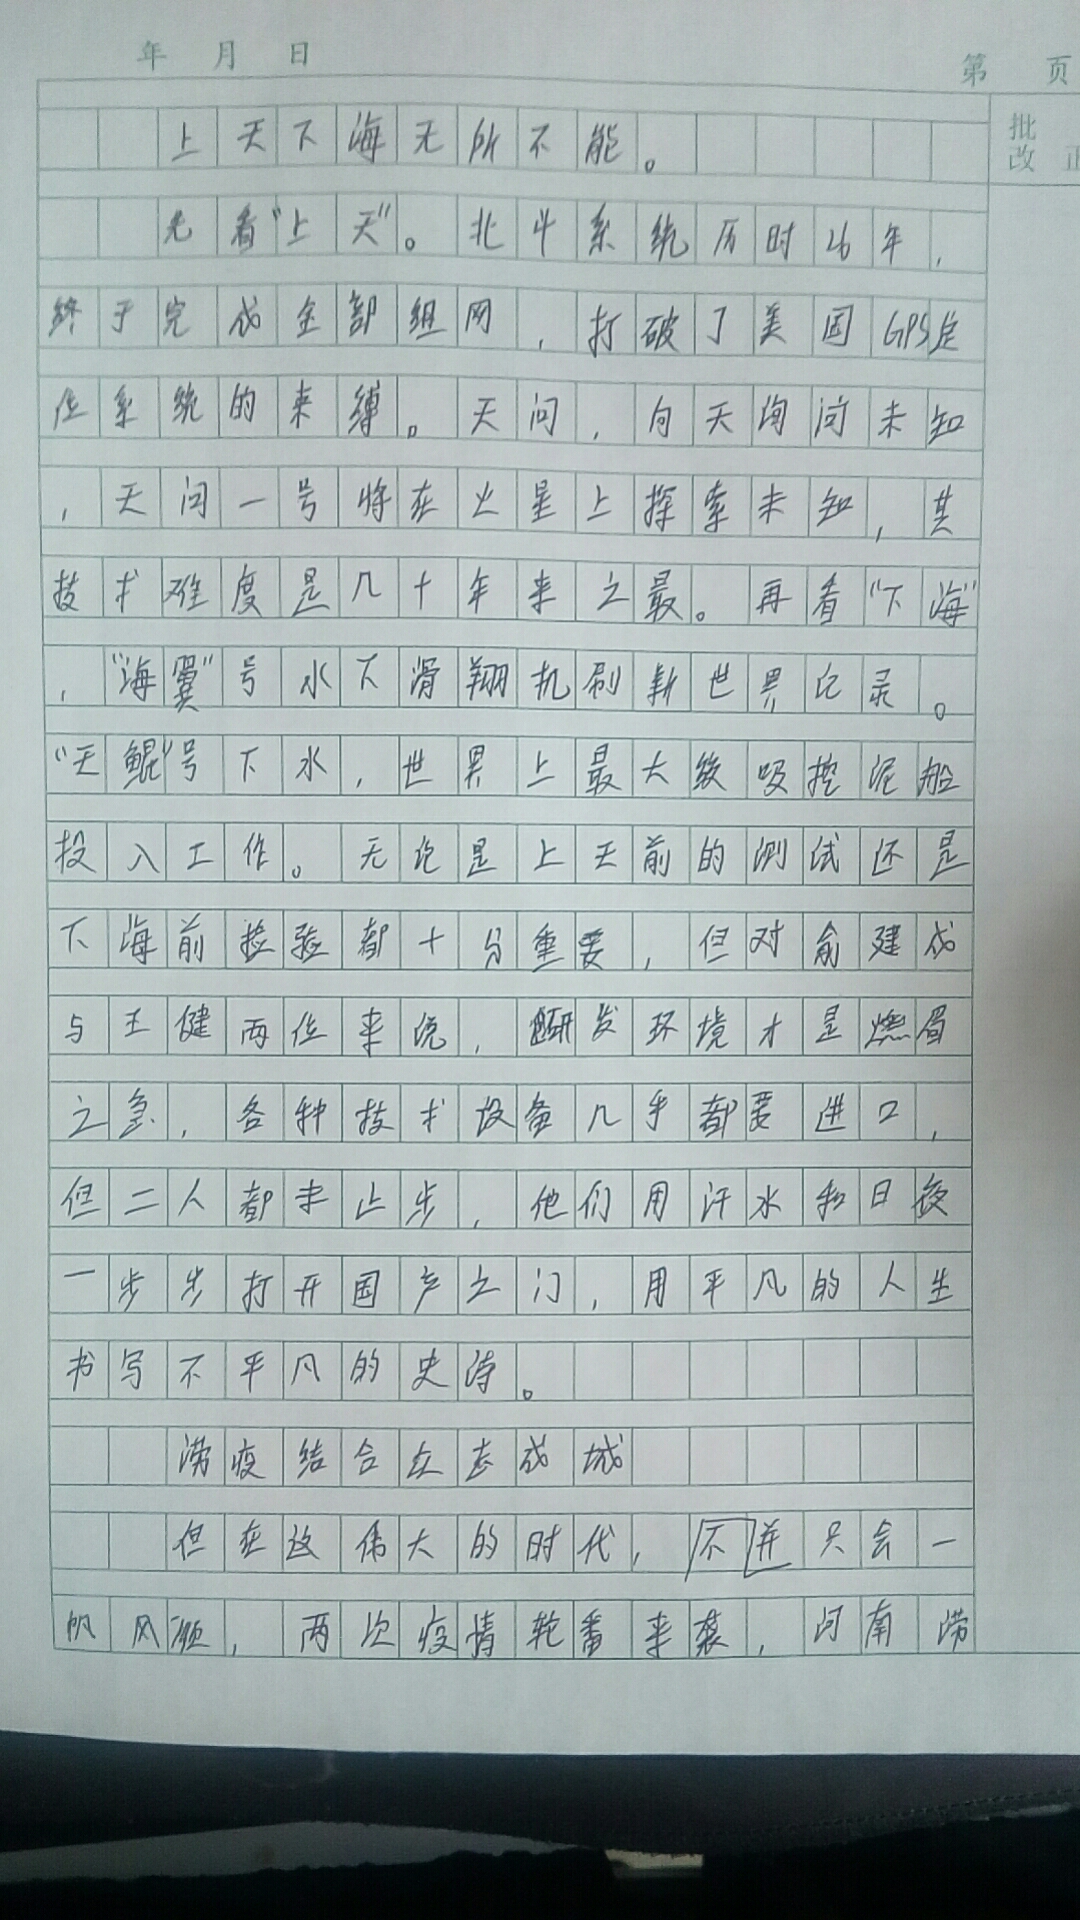 年 月 日
第 页
批改 正
上天下海无所不能。
先看“上天”。北斗系统历时26年,
终于完成全部组网,打破了美国GPS定
位系统的束缚。天问,向天询问未知
,天问一号将在火星上探索未知,其
技术难度是几十年来之最。再看“下海”
,“海翼”号水下滑翔机刷新世界记录。
“天鲲”号下水,世界上最大级吸挖泥船
投入工作。无论是上天前的测试还是
下海前检验都十分重要,但对俞建成
与王健两位来说,研发环境才是燃眉
之急,各种技术设备几乎都要进口,
但二人都未止步,他们用汗水和日夜
一步步打开国产之门,用平凡的人生
书写不平凡的史诗。
涝疫结合众志成城
但在这伟大的时代,不并只会一
帆风顺,两次疫情轮番来袭,河南涝